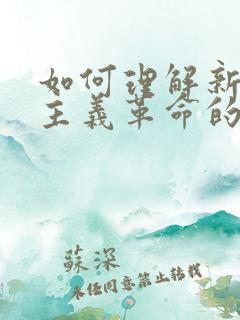 如何理解新
主義革命的
蘇深
未經同意禁止轉載